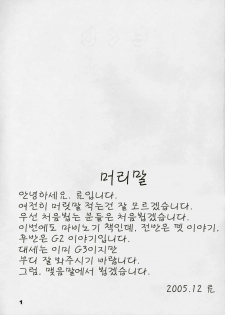 머리말
안녕하세요, 료입니다.
여전히 머릿말 적는건 잘 모르겠습니다.
우선 처음뵙는 분들은 처음뵙겠습니다.
이번에도 마비노기 책인데, 전반은 옛 이야기,
후반은 G2 이야기입니다.
대세는 이미 G3이지만
부디 잘 봐주시기 바랍니다.
그럼, 맺음말에서 뵙겠습니다.
2005.12
1